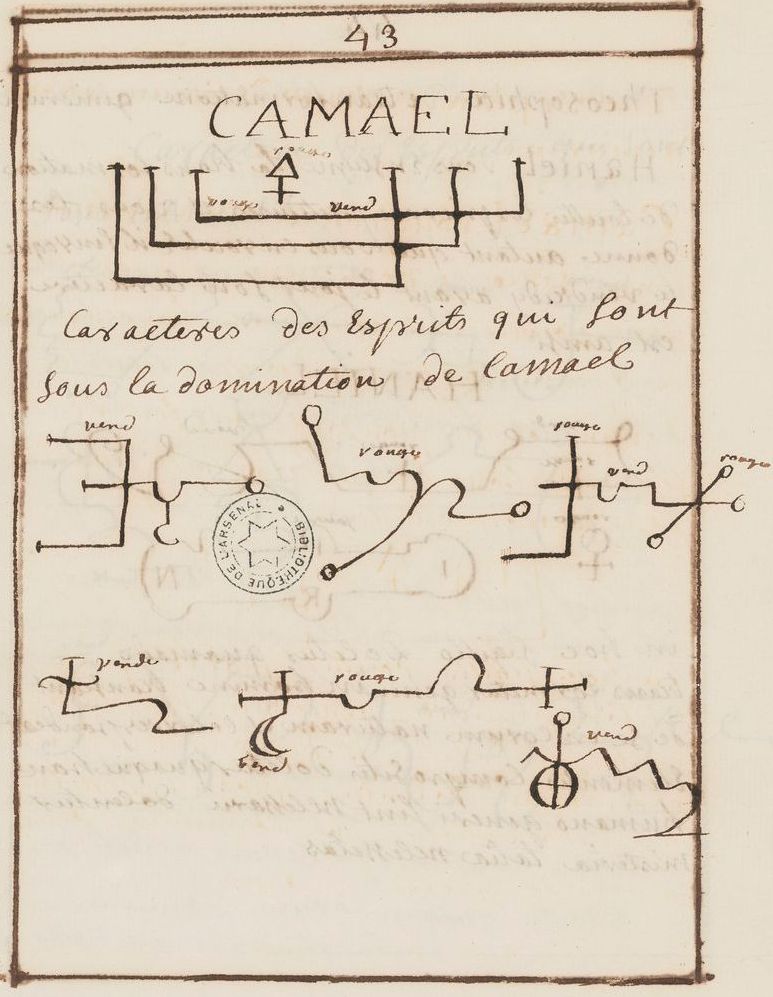 43
CAMAEL
rouge
rouge vend
Caracteres des Esprits qui sont
sous la domination de Camael
vend rouge rouge vend rouge
BIBLIOTHÈQUE DE L'ARSENAL
verde rouge
vend
vend